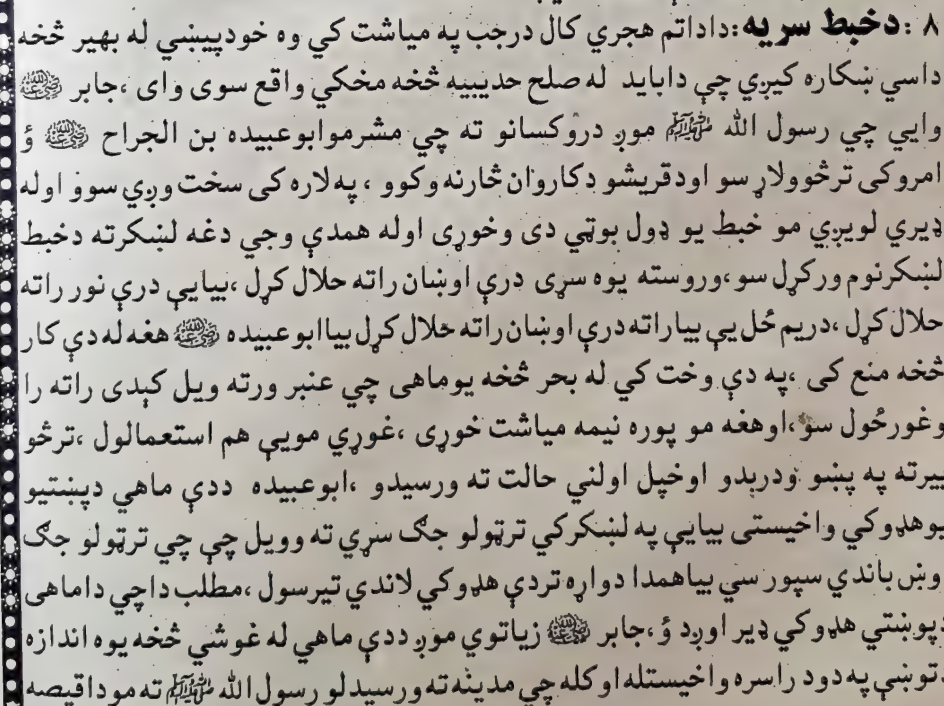 ۸ :دخبط سریه:داداتم هجري کال درجب په میاشت کي وه خودپیښي له بهیر څخه
داسي ښکاره کیږي چي داباید له صلح حدیبیه څخه مخکي واقع سوی وای ،جابر ﷜
وایي چي رسول الله ﷺ موږ دروکسانو ته چي مشرموابوعبیده بن الجراح ﷜ ؤ
امروکی ترڅوولاړ سو اودقریشو دکاروان څارنه وکوو ، په لاره کی سخت وږي سوو اوله
ډیري لویږي مو خبط یو ډول بوټي دی وخوړی اوله همدې وجي دغه لښکرته دخبط
لښکرنوم ورکړل سو ،وروسته یوه سړی درې اوښان راته حلال کړل ،بیایې درې نور راته
حلال کړل ،دریم ځل یې بیاراته درې اوښان راته حلال کړل بیاابوعبیده ﷜ هغه له دې کار
څخه منع کی ،په دې وخت کي له بحر څخه یوماهی چي عنبر ورته ویل کېدی راته را
وغورځول سو ،اوهغه مو پوره نیمه میاشت خوړی ،غوړي مویې هم استعمالول ،ترڅو
بیرته په پښو ودریدو اوخپل اولني حالت ته ورسیدو ،ابوعبیده ددې ماهي دپښتیو
یوهډوکي واخیستی بیایې په لښکرکي ترټولو جګ سړي ته وویل چي چي ترټولو جګ
وښ باندي سپور سي بیاهمدا دواړه تردې هډوکي لاندي تیرسول ،مطلب داچي داماهی
دپوښتي هډوکي ډیر اوږد ؤ،جابر ﷜ زیاتوي موږ ددې ماهي له غوښي څخه یوه اندازه
دتوښې په دود راسره واخیستله اوکله چي مدینه ته ورسیدلو رسول الله ﷺ ته مو داقیصه